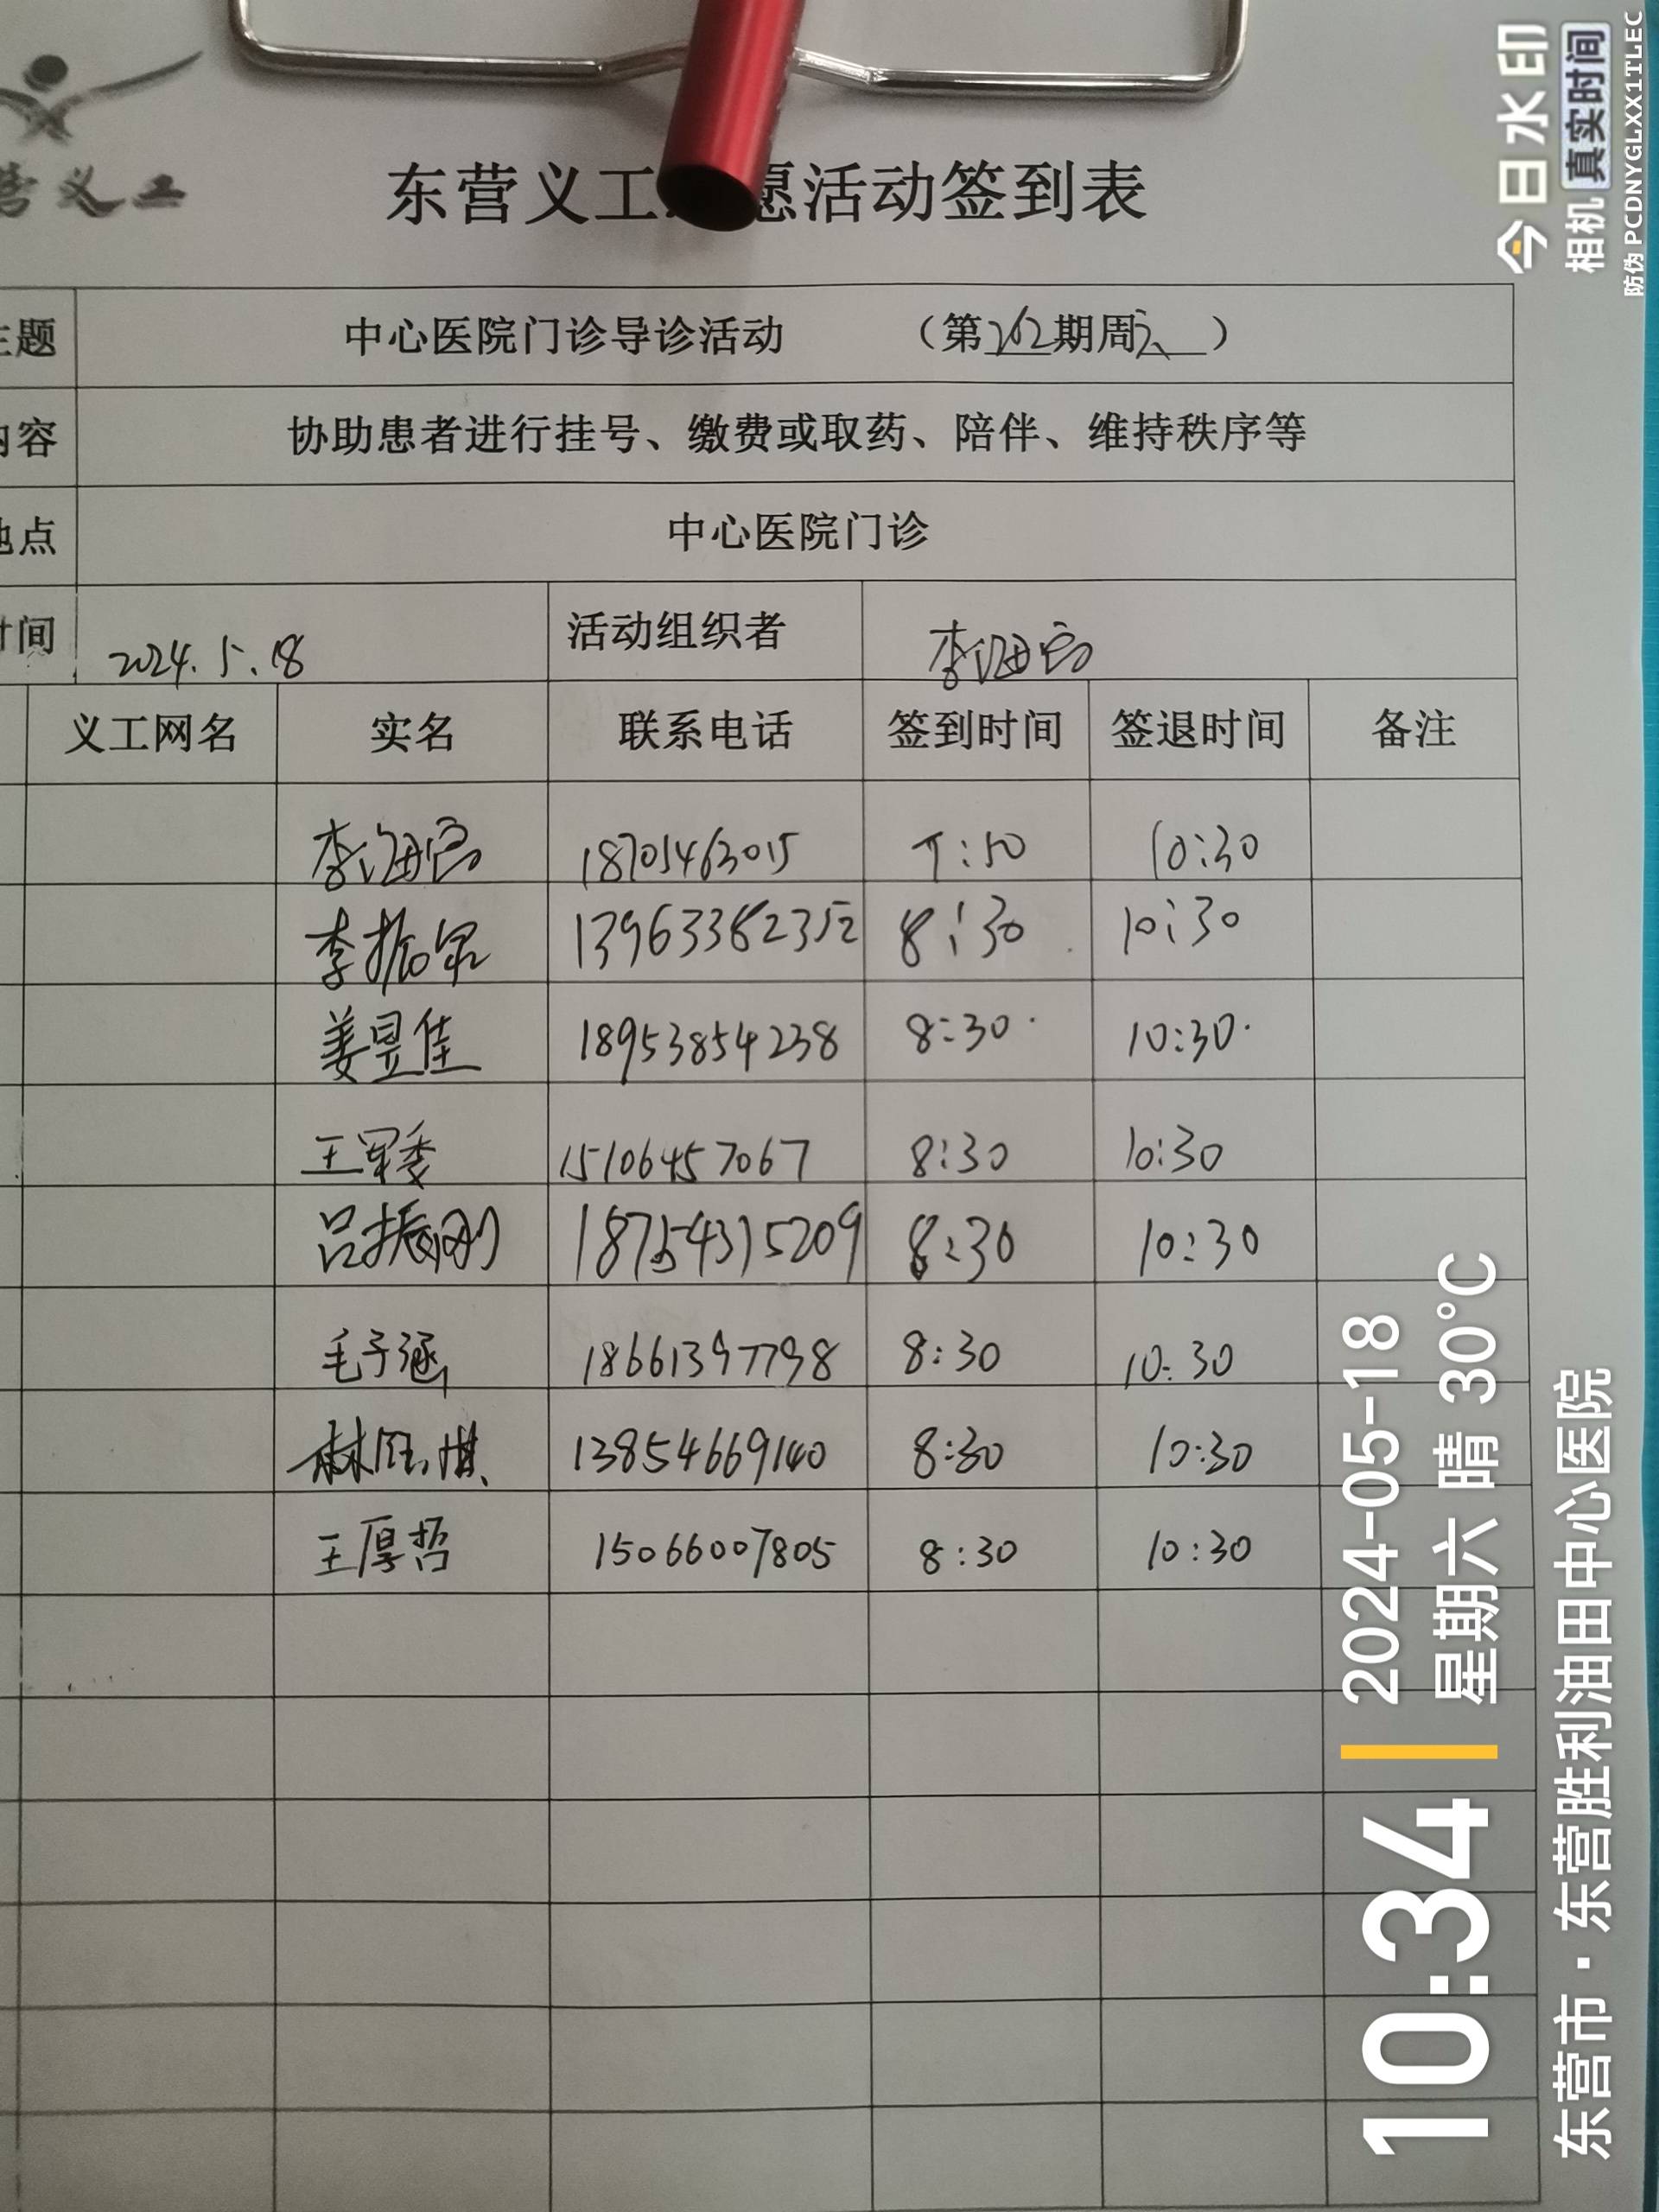 营义工
东营义工 愿活动签到表
主题 中心医院门诊导诊活动 (第262期周六)
内容 协助患者进行挂号、缴费或取药、陪伴、维持秩序等
地点 中心医院门诊
时间 2024.5.18 活动组织者 李海
义工网名 实名 联系电话 签到时间 签退时间 备注
李海 18705463015 :50 10:30
李振 13963382352 8:30 10:30
姜昱佳 18953854238 8:30 10:30
王军委 15106457067 8:30 10:30
吕振刚 18754315209 8:30 10:30
毛子涵 18661397798 8:30 10:30
林钰淇 13854669140 8:30 10:30
王厚哲 15066007805 8:30 10:30
今日水印
相机 真实时间
防伪 PCDNYGLXX1TLEC
10:34
2024-05-18
星期六 晴 30°C
东营市·东营胜利油田中心医院